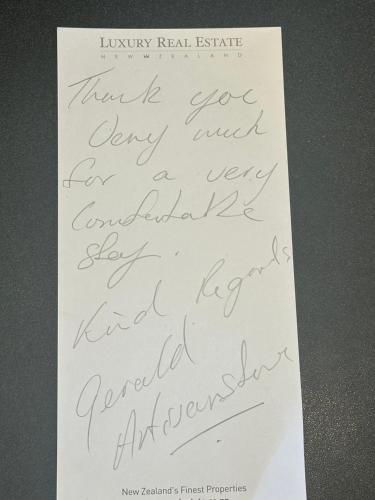 LUXURY REAL ESTATE
NEW ZEALAND
Thank you
Very much
for a very
Comfortable
stay.
Kind Regards
Gerald
New Zealand's Finest Properties